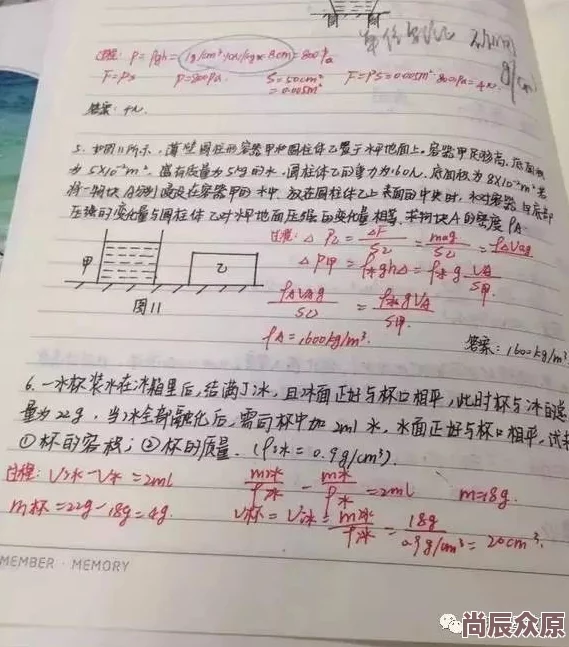 过程: P=ρgh=1g/cm³×10N/kg×8cm=800Pa
F=PS P=800Pa S=50cm²=0.005m² F=PS=0.005m²·800Pa=4N
答案: 4N
5. 如图11所示，薄壁圆柱形容器甲和圆柱体乙置于水平地面上。容器甲足够高，底面积
为5×10⁻²m²，盛有质量为5kg的水，圆柱体乙的重力为160N，底面积为8×10⁻²m²。若
将一物块A分别浸没在容器甲的水中、放在圆柱体乙上表面的中央时，水对容器甲底部
压强的变化量与圆柱体乙对水平地面压强的变化量相等，求物块A的密度ρA.
过程: ΔP乙=ΔF/S乙=mAg/S乙=ρAVAg
ΔP甲=ρ水ghΔ=ρ水g VA/S甲.
甲
乙
图11
ρAVAg/S乙=ρ水gVA/S甲
ρA=1600kg/m³. 答案: 1600kg/m³
6. 一水杯装水在冰箱里后，结满了冰，且冰面正好与杯口相平，此时杯与冰的
量为22g，当冰全部融化后，需向杯中加2ml水，水面正好与杯口相平，试
①杯的容积；②杯的质量. (ρ冰=0.9g/cm³).
过程: V冰-V水=2ml m冰/ρ冰-m水/ρ水=2ml m=18g.
m杯=22g-18g=4g. V杯=V冰=m冰/ρ冰=18g/0.9g/cm³=20cm³.
MEMBER · MEMORY
尚辰众原